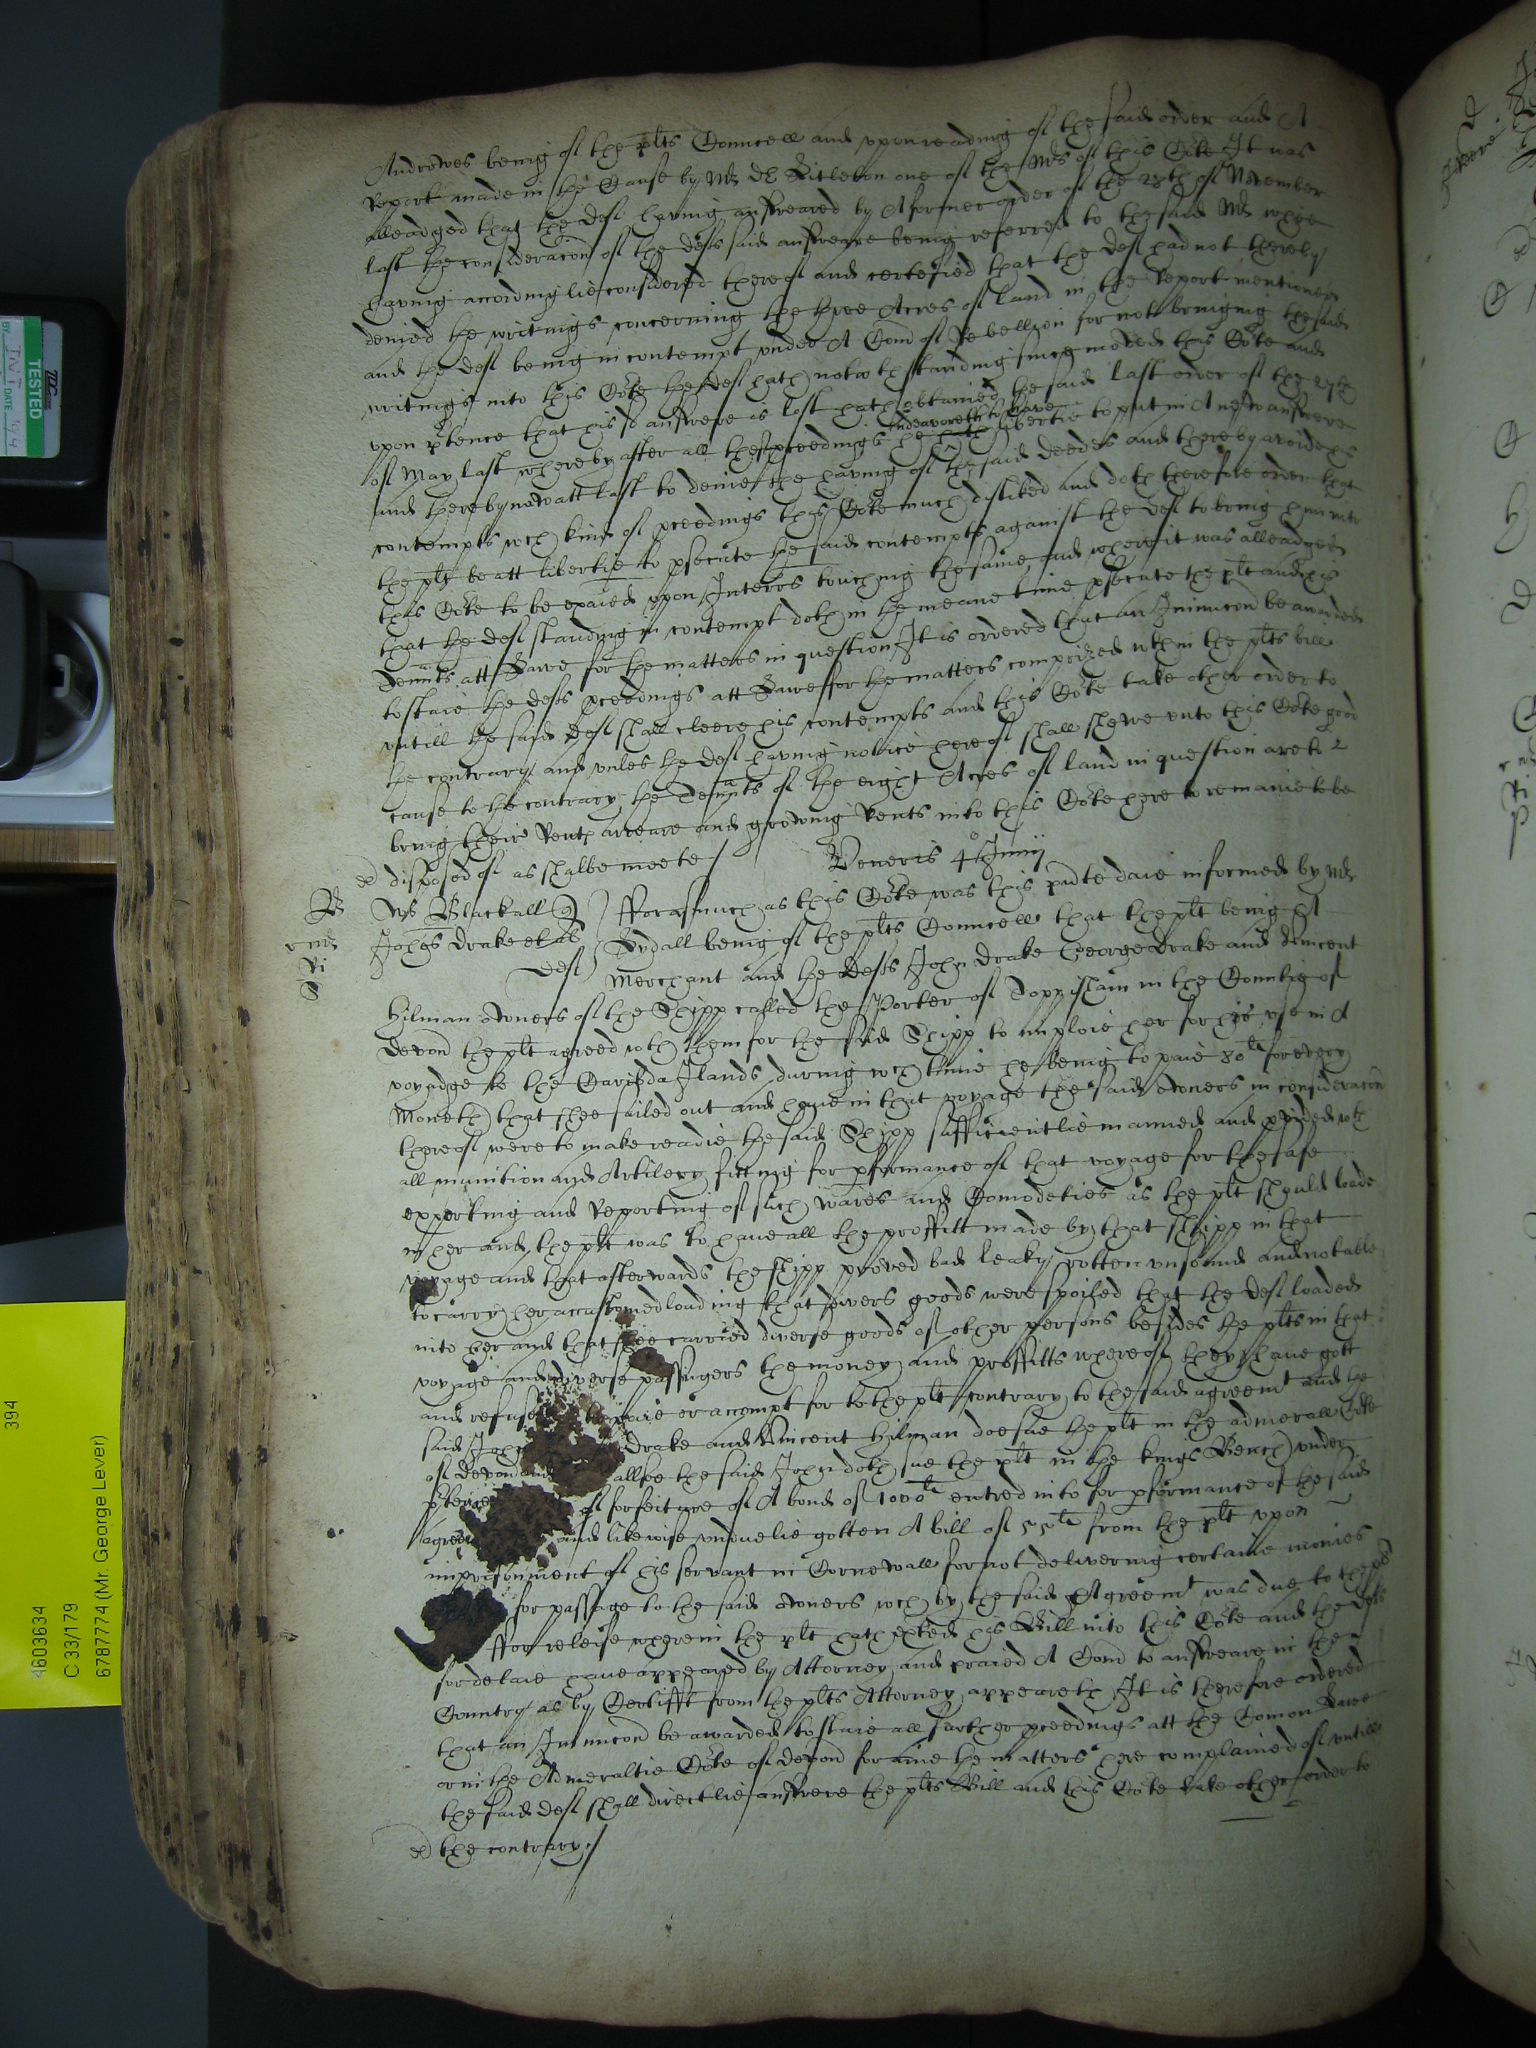 Andrewes being of the plts Councell and upon reading of the said order and A
Report made in the Cause by Mr Dr one of the Mrs of this Corte It was
alleadged that the deft having answeared by A former order of the 28th of November
last the consideracon of the defts said answeare being referred to the said Mr whoe
having accordinglie considered thereof and certefied that the deft had not thereby
denied the writings concerning the three Acres of land in the Report mentioned
and the deft being in contempt under A Comd of Rebellion for not bringing the said
writings into this Corte the deft hath notwthstanding since moved this Corte and
upon ptence that his sd answere is lost hath obtained the said last order of the 27th
of May last whereby after all these pceedings he hath endeavoreth to have libertie to put in A new answere
and thereby now att last to denie the having of the said deedes and thereby avoid his
contempts wch kind of pceedings this Corte much disliked and doth therefore order that
the plt be att libertie to psecute the said contempts against the deft to bring him into
this Corte to be exaied upon Interres touching the same, and where it was alleadged
that the deft standing in contempt doth in the meane time psecute the plt and his
Tennts att Lawe for the matters in question It is ordered that an Iniunccon be awarded
to staie the defts pceedings att Lawe for the matters comprized wthin the plts bill
untill the said deft shall cleere his contempts and this Corte take other order to
the contrary, and unles the deft having notice hereof shall shewe unto this Corte good
cause to the contrary the Tennts of the eight Acres of land in question are to
bring their Rents arreare and growing Rents into this Corte here to remaine to be
disposed of as shalbe meete /
Veneris 4o Junij
Blackall
Johes Drake et al
deft
Forasmuch as this Corte was this pnte daie informed by Mr
being of the plts Councell that the plt being A
Merchant and the defts John Drake George Drake and Vincent
Hilman owners of the Shipp called the Porter of Topphsham in the Countie of
Devon the plt agreed wth them for the said Shipp to imploie her for his use in A
voyadge to the Ilands during wch time he being to paie 80li for every
Moneth that shee sailed out and home in that voyage the said owners in consideracon
thereof were to make readie the said Shipp sufficientlie manned and pvided wth
all munition and Artilery fitting for pformance of that voyage for the safe
exporting and Reporting of such wares and Comodeties as the plt should loade
in her and the plt was to have all the proffitt made by that shipp in that
voyage and that afterwards the shipp proved bad leaky rotten unsound and not able
to carry her accustomed loading that divers goods were spoiled that the deft loaded
into her and that shee carried diverse goods of other persons besides the plts in that
voyage and diverse passingers the money and proffitts whereof they have gott
and refuse to paie or accompt for to the plt contrary to the said agreemt and the
said John Drake and Vincent Hilman doe sue the plt in the admerall Corte
of Devon and allsoe the said John doth sue the plt in the kings Bench under
ptence of forfeiture of A bond of 1000li entred into for pformance of the said
agree and likewise unduelie gotten A bill of 55li from the plt upon
imprisonment of his servant in Cornewall for not delivering certaine monies
for passage to the said owners wch by the said Agreemt was due to the plt
ffor releife wherein the plt hath exhted his Bill into this Corte and the defts
for delaie have appeared by Attorney and praied A Comd to answeare in the
Country as by Certifft from the plts Attorney appeareth It is therefore ordered
that an Iniunccon be awarded to staie all further pceedings att the Comon Lawe
or in the Admeraltie Corte of Devon for anie the matters here complained of untill
the said deft shall directlie answere the plts Bill and this Corte take other order to
the contrary /
TESTED
BY INT
DATE
4603634 394
C 33/179
6787774 (Mr. George Lever)